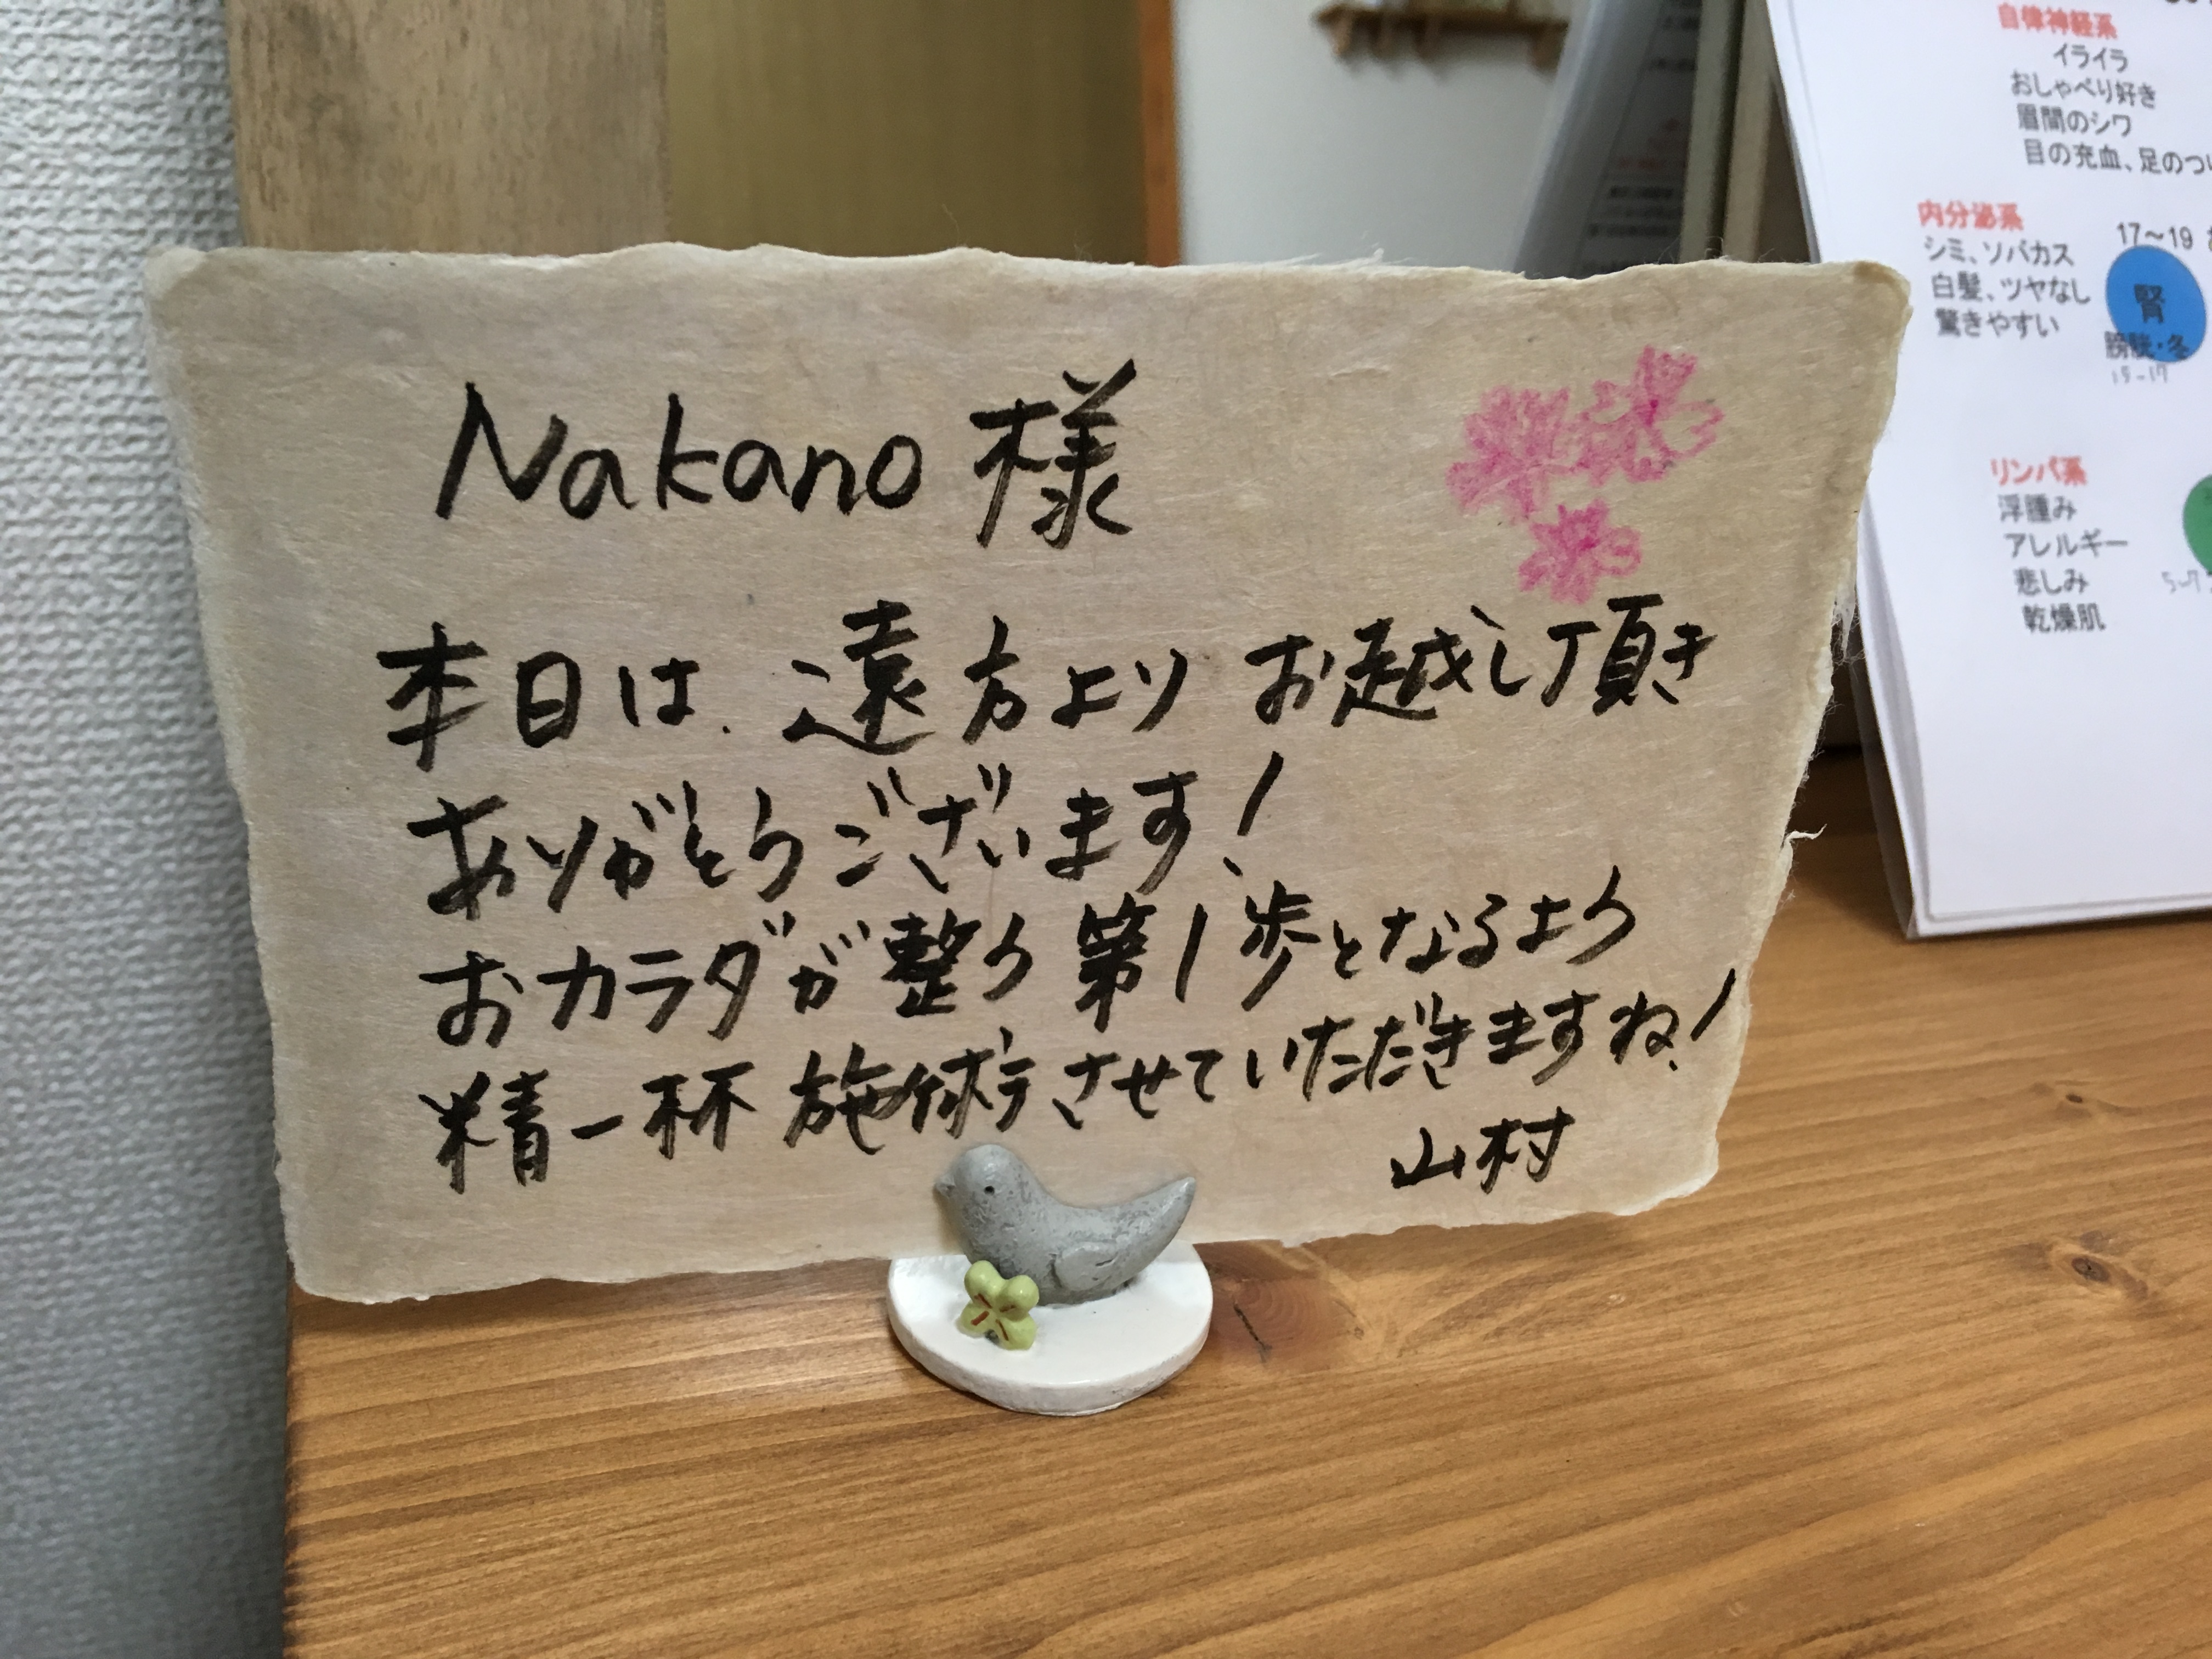 Nakano 様
本日は、遠方より お越し頂き
ありがとうございます!
おカラダが整う第1歩となるよう
精一杯 施術させていただきますね!
山村
自律神経系
イライラ
おしゃべり好き
眉間のシワ
目の充血、足のつ
内分泌系
シミ、ソバカス
白髪、ツヤなし
驚きやすい
17～19
腎
膀胱・冬
15-17
リンパ系
浮腫み
アレルギー
悲しみ
乾燥肌
5-7